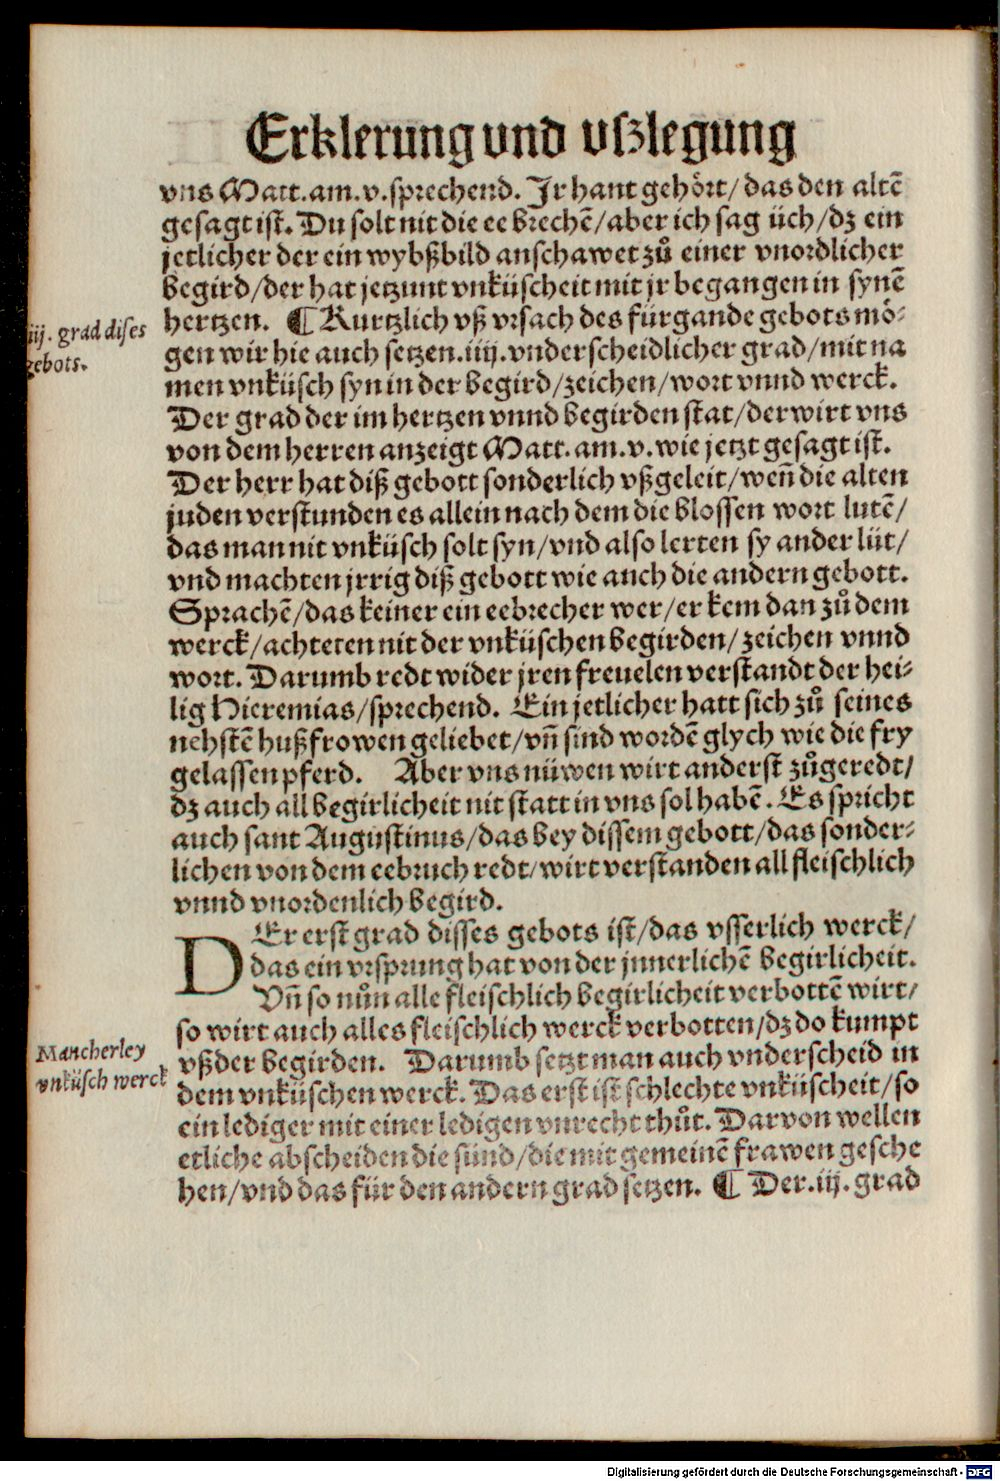 Erklerung vnd vßlegung
vns Matt.am.v.sprechend. Jr hant gehört/das den altē
gesagt ist. Du solt nit die ee brechē/aber ich sag üch/dz ein
jetlicher der ein wybßbild anschawet zů einer vnordlicher
begird/der hat jetzunt vnküscheit mit jr begangen in synē
hertzen. ¶ Kurtzlich vß vrsach des fürgande gebots mö-
iiij. grad dises
gebots.
gen wir hie auch setzen.iiij.vnderscheidlicher grad/mit na
men vnküsch syn in der begird/zeichen/wort vnnd werck.
Der grad der im hertzen vnnd begirden stat/der wirt vns
von dem herren anzeigt Matt.am.v.wie jetzt gesagt ist.
Der herr hat diß gebott sonderlich vßgeleit/weñ die alten
juden verstunden es allein nach dem die blossen wort lutē/
das man nit vnküsch solt syn/vnd also lerten sy ander lüt/
vnd machten jrrig diß gebott wie auch die andern gebott.
Sprachē/das keiner ein eebrecher wer/er kem dan zů dem
werck/achteten nit der vnküschen begirden/zeichen vnnd
wort. Darumb redt wider jren freuelen verstandt der hei-
lig Hieremias/sprechend. Ein jetlicher hatt sich zů seines
nehstē hußfrowen geliebet/vñ sind wordē glych wie die fry
gelassen pferd. Aber vns nüwen wirt anderst zůgeredt/
dz auch all begirlicheit nit statt in vns sol habē. Es spricht
auch sant Augustinus/das bey dissem gebott/das sonder-
lichen von dem eebruch redt/wirt verstanden all fleischlich
vnnd vnordenlich begird.
DEr erst grad disses gebots ist/das vsserlich werck/
das ein vrsprung hat von der jnnerlichē begirlicheit.
Vñ so nůn alle fleischlich begirlicheit verbottē wirt/
so wirt auch alles fleischlich werck verbotten/dz do kumpt
Mancherley
vnküsch werck
vß der begirden. Darumb setzt man auch vnderscheid in
dem vnküschen werck. Das erst ist schlechte vnküscheit/so
ein lediger mit einer ledigen vnrecht thůt. Darvon wellen
etliche abscheiden die sünd/die mit gemeinē frawen gesche
hen/vnd das für den andern grad setzen. ¶ Der.iij.grad
Digitalisierung gefördert durch die Deutsche Forschungsgemeinschaft - DFG